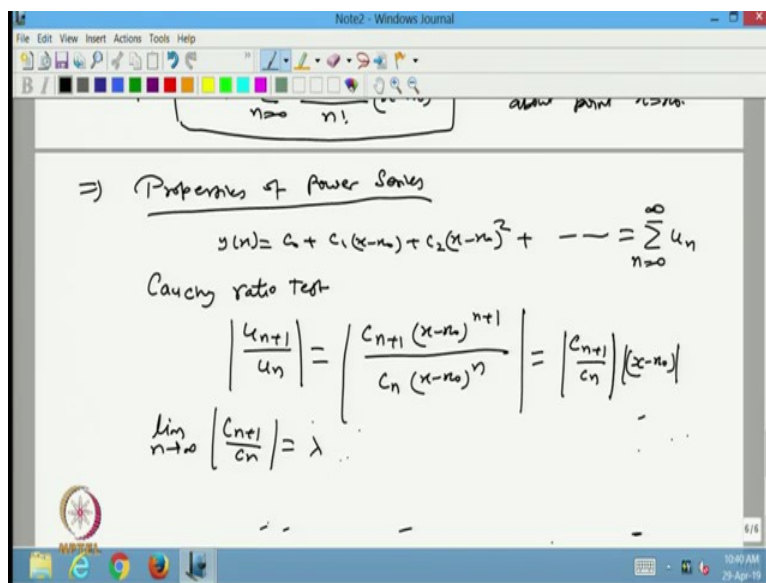 Note2 - Windows Journal
File Edit View Insert Actions Tools Help
B I
n=0 n! (x-x₀) about point x=x₀.
⇒) Properties of Power Series
y(x) = c₀ + c₁(x-x₀) + c₂(x-x₀)² + --- = ∑_{n=0}^{∞} u_n
Cauchy ratio Test
|u_{n+1}/u_n| = |c_{n+1}(x-x₀)^{n+1}/c_n(x-x₀)^n| = |c_{n+1}/c_n| |(x-x₀)|
lim_{n→∞} |c_{n+1}/c_n| = λ
6/6
NPTEL
10:40 AM
29-Apr-19